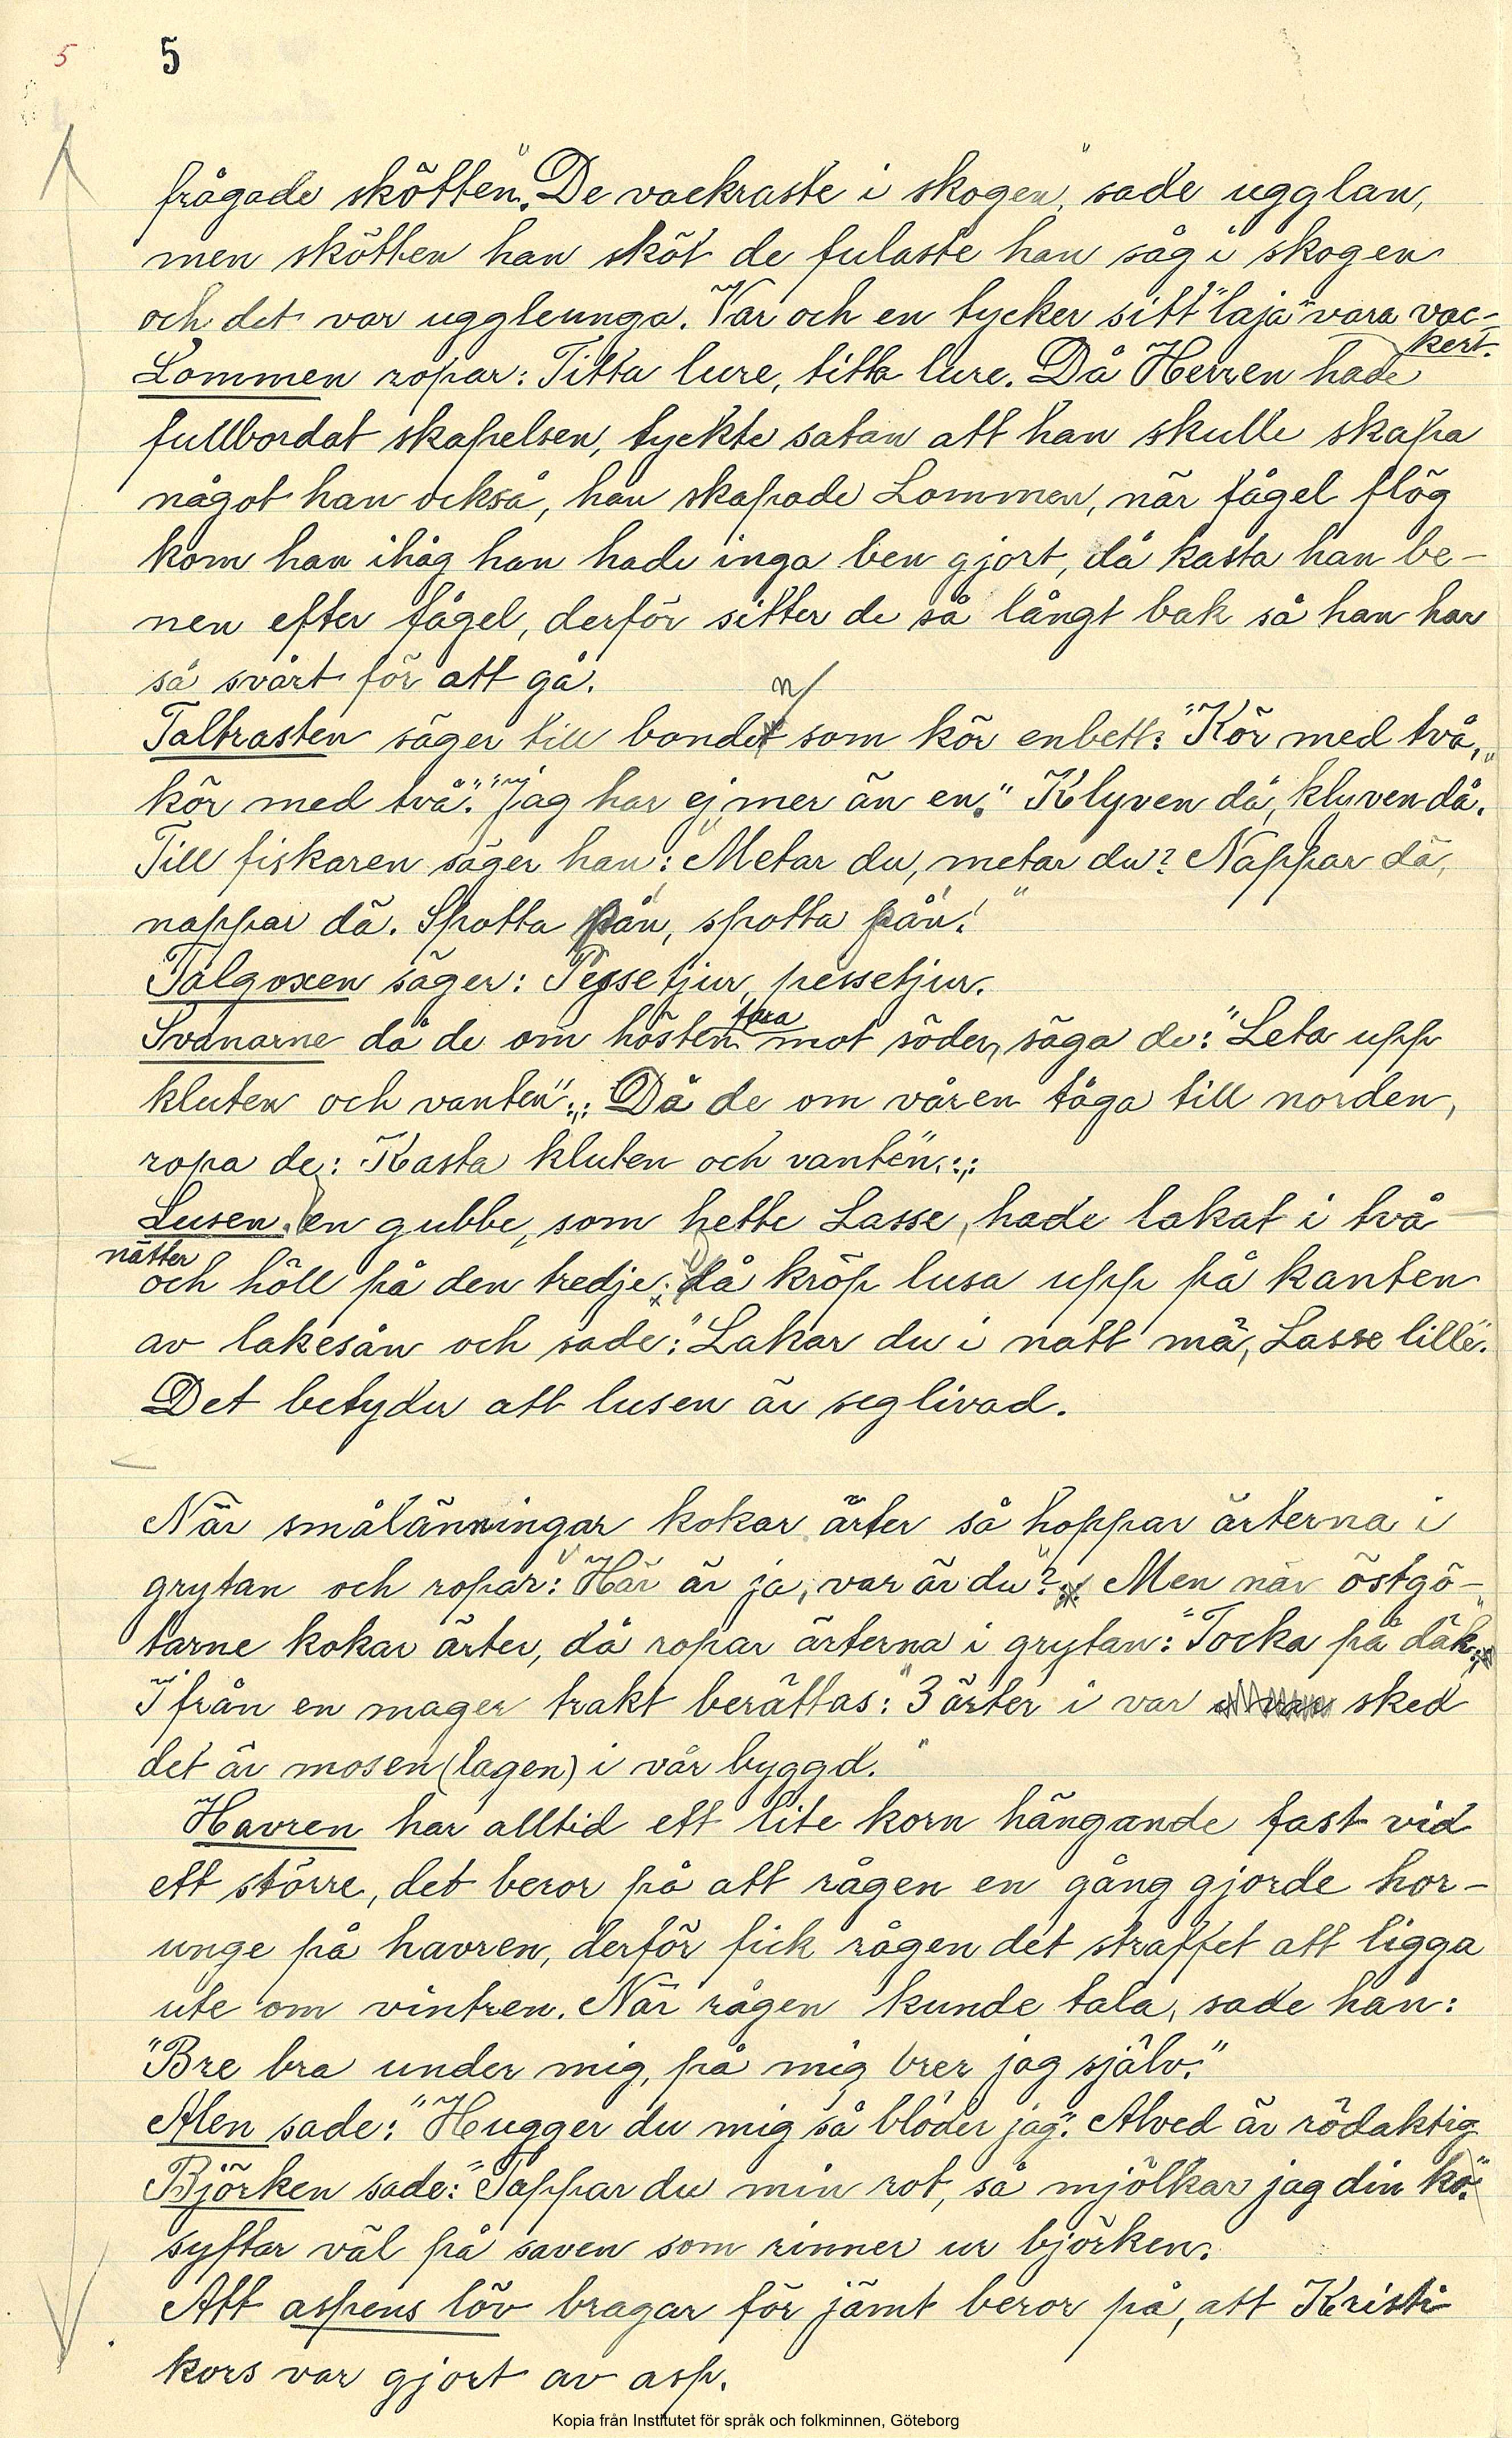 5 5
frågade skötten. "De vackraste i skogen", sade ugglan,
men skötten han sköt de fulaste han såg i skogen
och det var uggleunga. Var och en tycker sitt "laja" vara vac-
kert.
Lommen ropar: Titta lure, titta lure. Då Herren hade
fullbordat skapelsen, tyckte satan att han skulle skapa
något han också, han skapade Lommen, när fågel flög
kom han ihåg han hade inga ben gjort, då kasta han be-
nen efter fågel, derför sitter de så långt bak så han har
så svårt för att gå.
n/
Taltrasten säger till bondet som kör enbett: "Kör med två,
kör med två". "Jag har ej mer än en." "Klyven då, klyven då.
Till fiskaren säger han: "Metar du, metar du? Nappar då,
nappar då. Spotta på'n, spotta på'n!"
Talgoxen säger: Pessetjur, pessetjur.
fara
Svanarne då de om hösten mot söder, säga de: "Leta upp
kluten och vanten":,: Då de om våren tåga till norden,
ropa de: Kasta kluten och vanten":,:
Lusen. en gubbe, som hette Lasse, hade lakat i två
nätter
och höll på den tredje, då kröp lusa upp på kanten
av lakesån och sade: "Lakar du i natt må, Lasse lille".
Det betyder att lusen är seglivad.
När smålänningar kokar ärter så hoppar ärterna i
grytan och ropar: "Här är ja, var är du"? Men när östgö-
tarne kokar ärter, då ropar ärterna i grytan: "Tocka på däk".
I från en mager trakt berättas: "3 ärter i var sked
det är mosen (lagen) i vår byggd."
Havren har alltid ett lite korn hängande fast vid
ett större, det beror på att rågen en gång gjorde hor-
unge på havren, derför fick rågen det straffet att ligga
ute om vintren. När rågen kunde tala, sade han:
"Bre bra under mig, på mig brer jag själv."
Alen sade: "Hugger du mig så blöder jag". Alved är rödaktig
Björken sade: "Tappar du min rot, så mjölkar jag din ko".
syftar väl på saven som rinner ur björken.
Att aspens löv bragar för jämt beror på, att Kristi
kors var gjort av asp.
Kopia från Institutet för språk och folkminnen, Göteborg